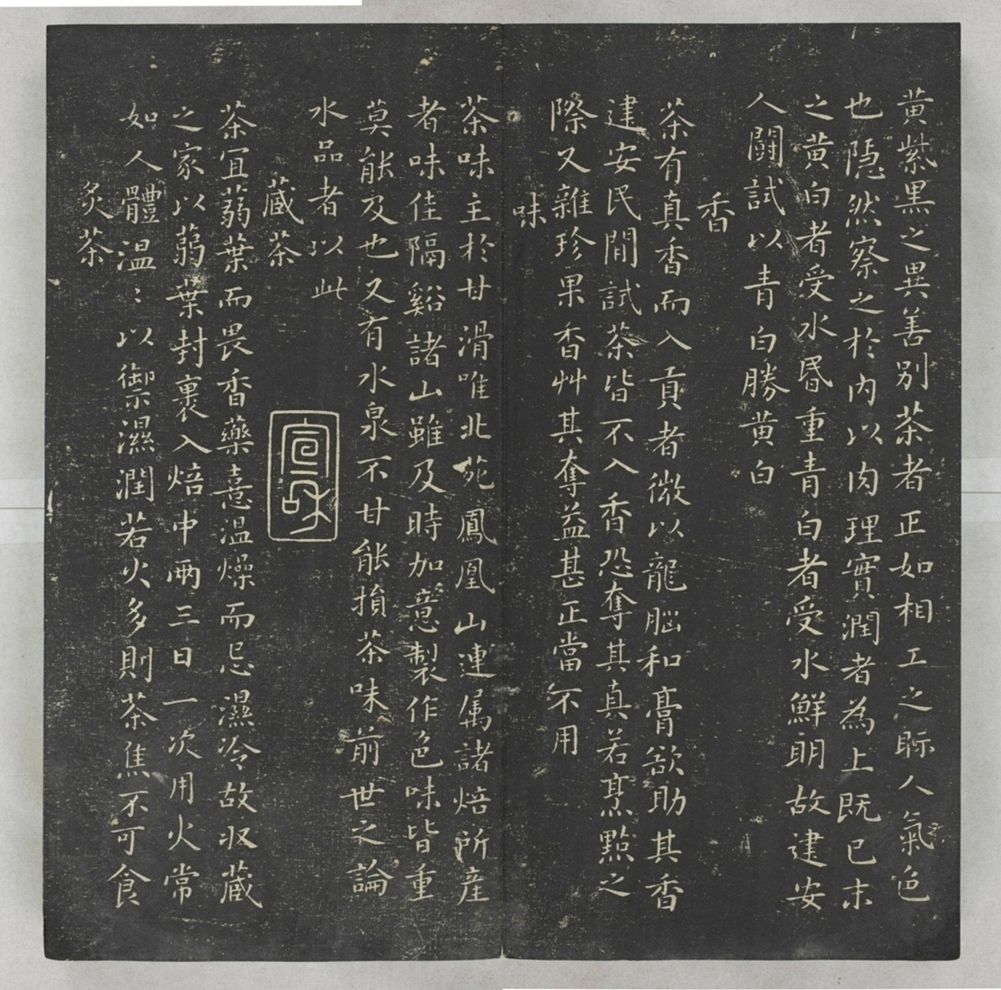 黃紫黑之異善別茶者正如相工之眎人氣色
也隱然察之於內以肉理實潤者為上既已末
之黃白者受水昏重青白者受水鮮明故建安
人鬪試以青白勝黃白
香
茶有真香而入貢者微以龍腦和膏欲助其香
建安民間試茶皆不入香恐奪其真若烹點之
際又雜珍果香艸其奪益甚正當不用
味
茶味主於甘滑唯北苑鳳凰山連属諸焙所産
者味佳隔谿諸山雖及時加意製作色味皆重
莫能及也又有水泉不甘能損茶味前世之論
水品者以此
藏茶
宣和
茶宜蒻葉而畏香藥憙温燥而忌濕冷故収藏
之家以蒻葉封裹入焙中兩三日一次用火常
如人體温：以御濕潤若火多則茶焦不可食
炙茶